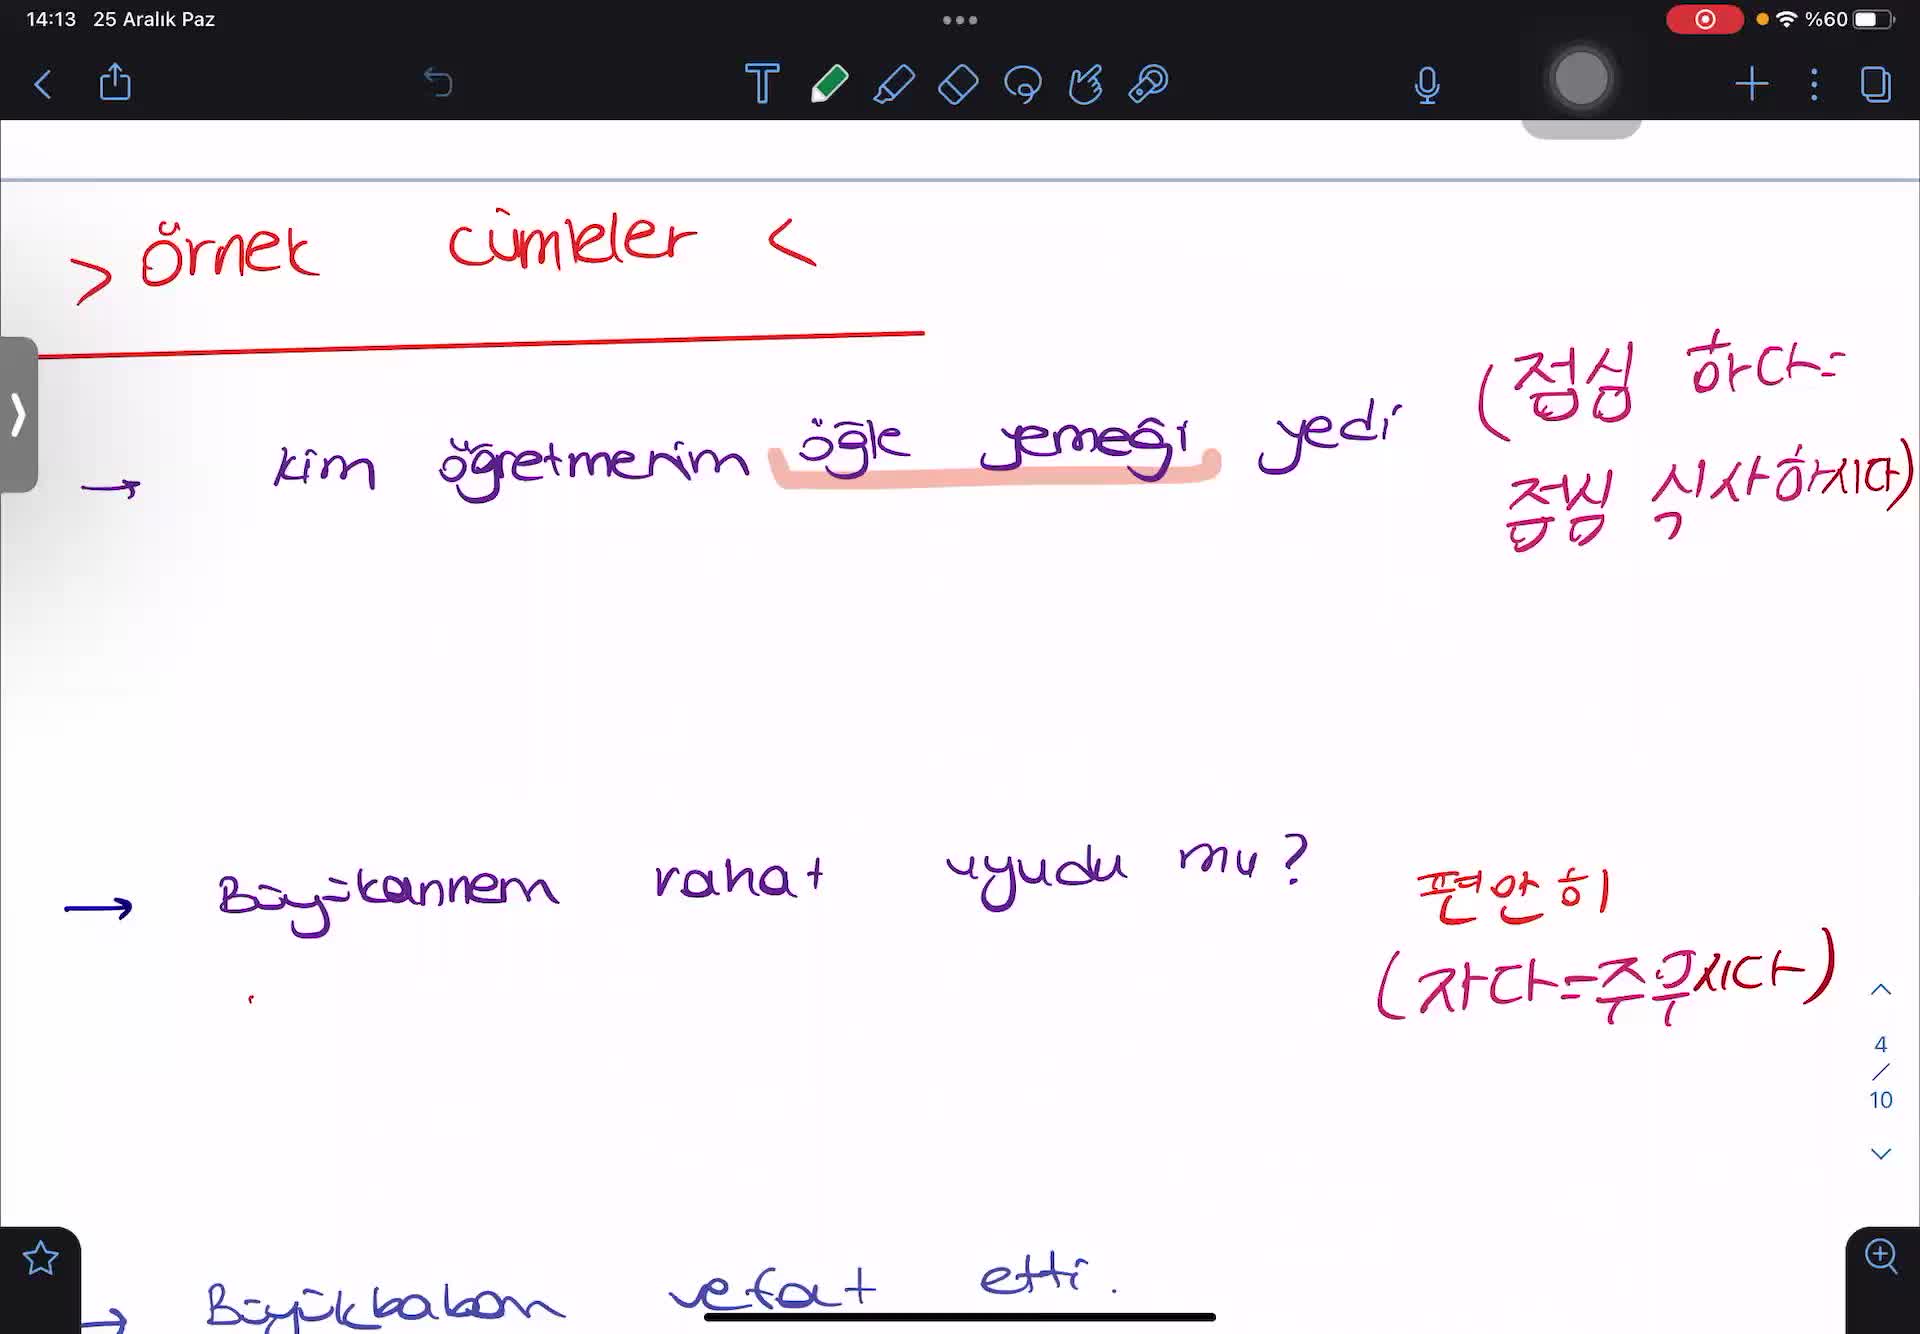 14:13 25 Aralık Paz %60
> örnek cümleler <
→ kim öğretmenim öğle yemeği yedi
(점심 하다=
점심 식사하시다)
→ Büyükannem rahat uyudu mu?
편안히
(자다=주무시다)
4
/
10
→ Büyükbabam vefat etti.